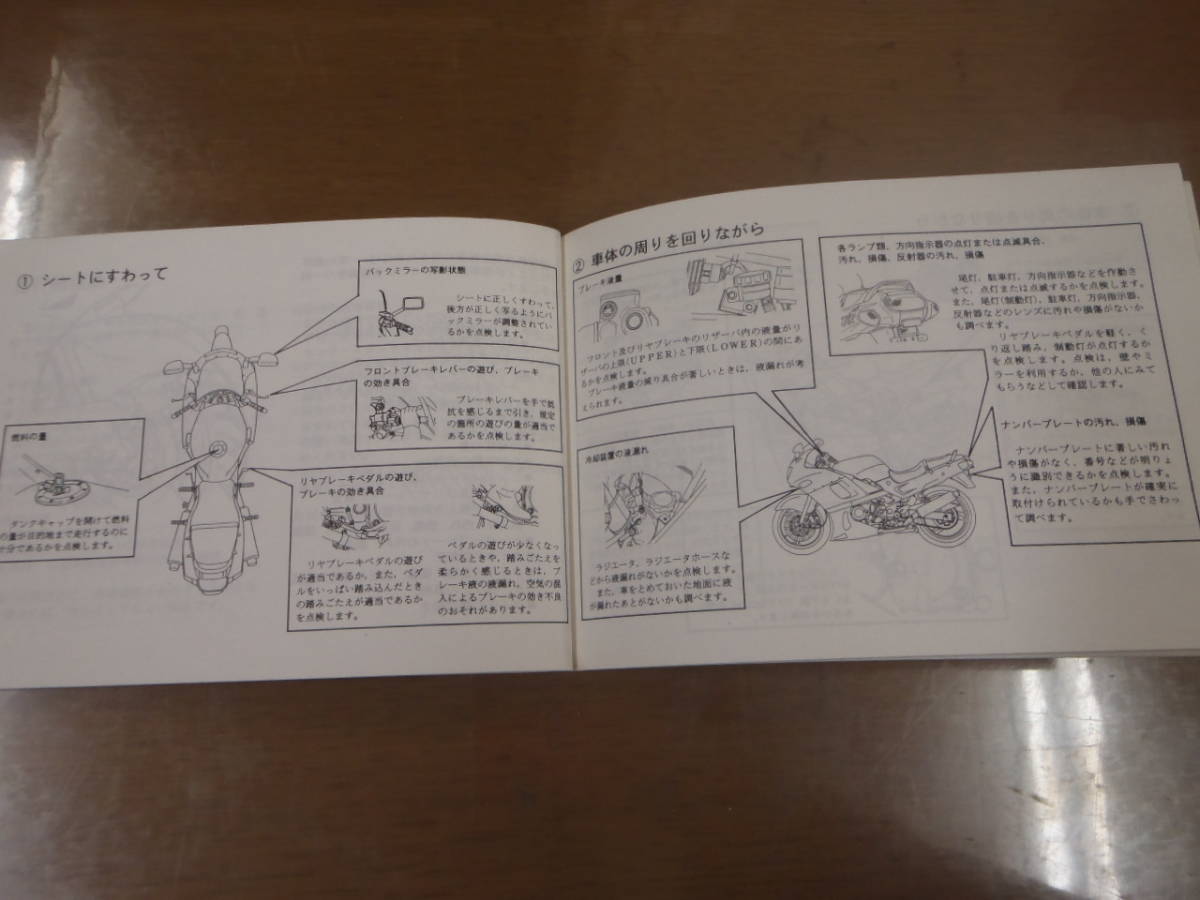 ① シートにすわって
バックミラーの写影状態
シートに正しくすわって、
後方が正しく写るようにバ
ックミラーが調整されてい
るかを点検します。
フロントブレーキレバーの遊び、ブレーキ
の効き具合
ブレーキレバーを手で抵
抗を感じるまで引き、規定
の箇所の遊びの量が適当で
あるかを点検します。
燃料の量
タンクキャップを開けて燃料
の量が目的地まで走行するのに
十分であるかを点検します。
リヤブレーキペダルの遊び、
ブレーキの効き具合
リヤブレーキペダルの遊び
が適当であるか、また、ペダ
ルをいっぱい踏み込んだとき
の踏みごたえが適当であるか
を点検します。
ペダルの遊びが少なくなっ
ているときや、踏みごたえを
柔らかく感じるときは、ブ
レーキ液の液漏れ、空気の混
入によるブレーキの効き不良
のおそれがあります。
② 車体の周りを回りながら
ブレーキ液量
フロント及びリヤブレーキのリザーバ内の液量がリ
ザーバの上限(UPPER)と下限(LOWER)の間にあ
るかを点検します。
ブレーキ液量の減り具合が著しいときは、液漏れが考
えられます。
冷却装置の液漏れ
ラジエータ、ラジエータホースな
どから液漏れがないかを点検します。
また、車をとめておいた地面に液
が漏れたあとがないかも調べます。
各ランプ類、方向指示器の点灯または点滅具合、
汚れ、損傷、反射器の汚れ、損傷
尾灯、駐車灯、方向指示器などを作動さ
せて、点灯または点滅するかを点検します。
また、尾灯(制動灯)、駐車灯、方向指示器、
反射器などのレンズに汚れや損傷がないか
も調べます。
リヤブレーキペダルを軽く、く
り返し踏み、制動灯が点灯するか
を点検します。点検は、壁やミ
ラーを利用するか、他の人にみて
もらうなどして確認します。
ナンバープレートの汚れ、損傷
ナンバープレートに著しい汚れ
や損傷がなく、番号などが明りょ
うに識別できるかを点検します。
また、ナンバープレートが確実に
取付けられているかも手でさわっ
て調べます。